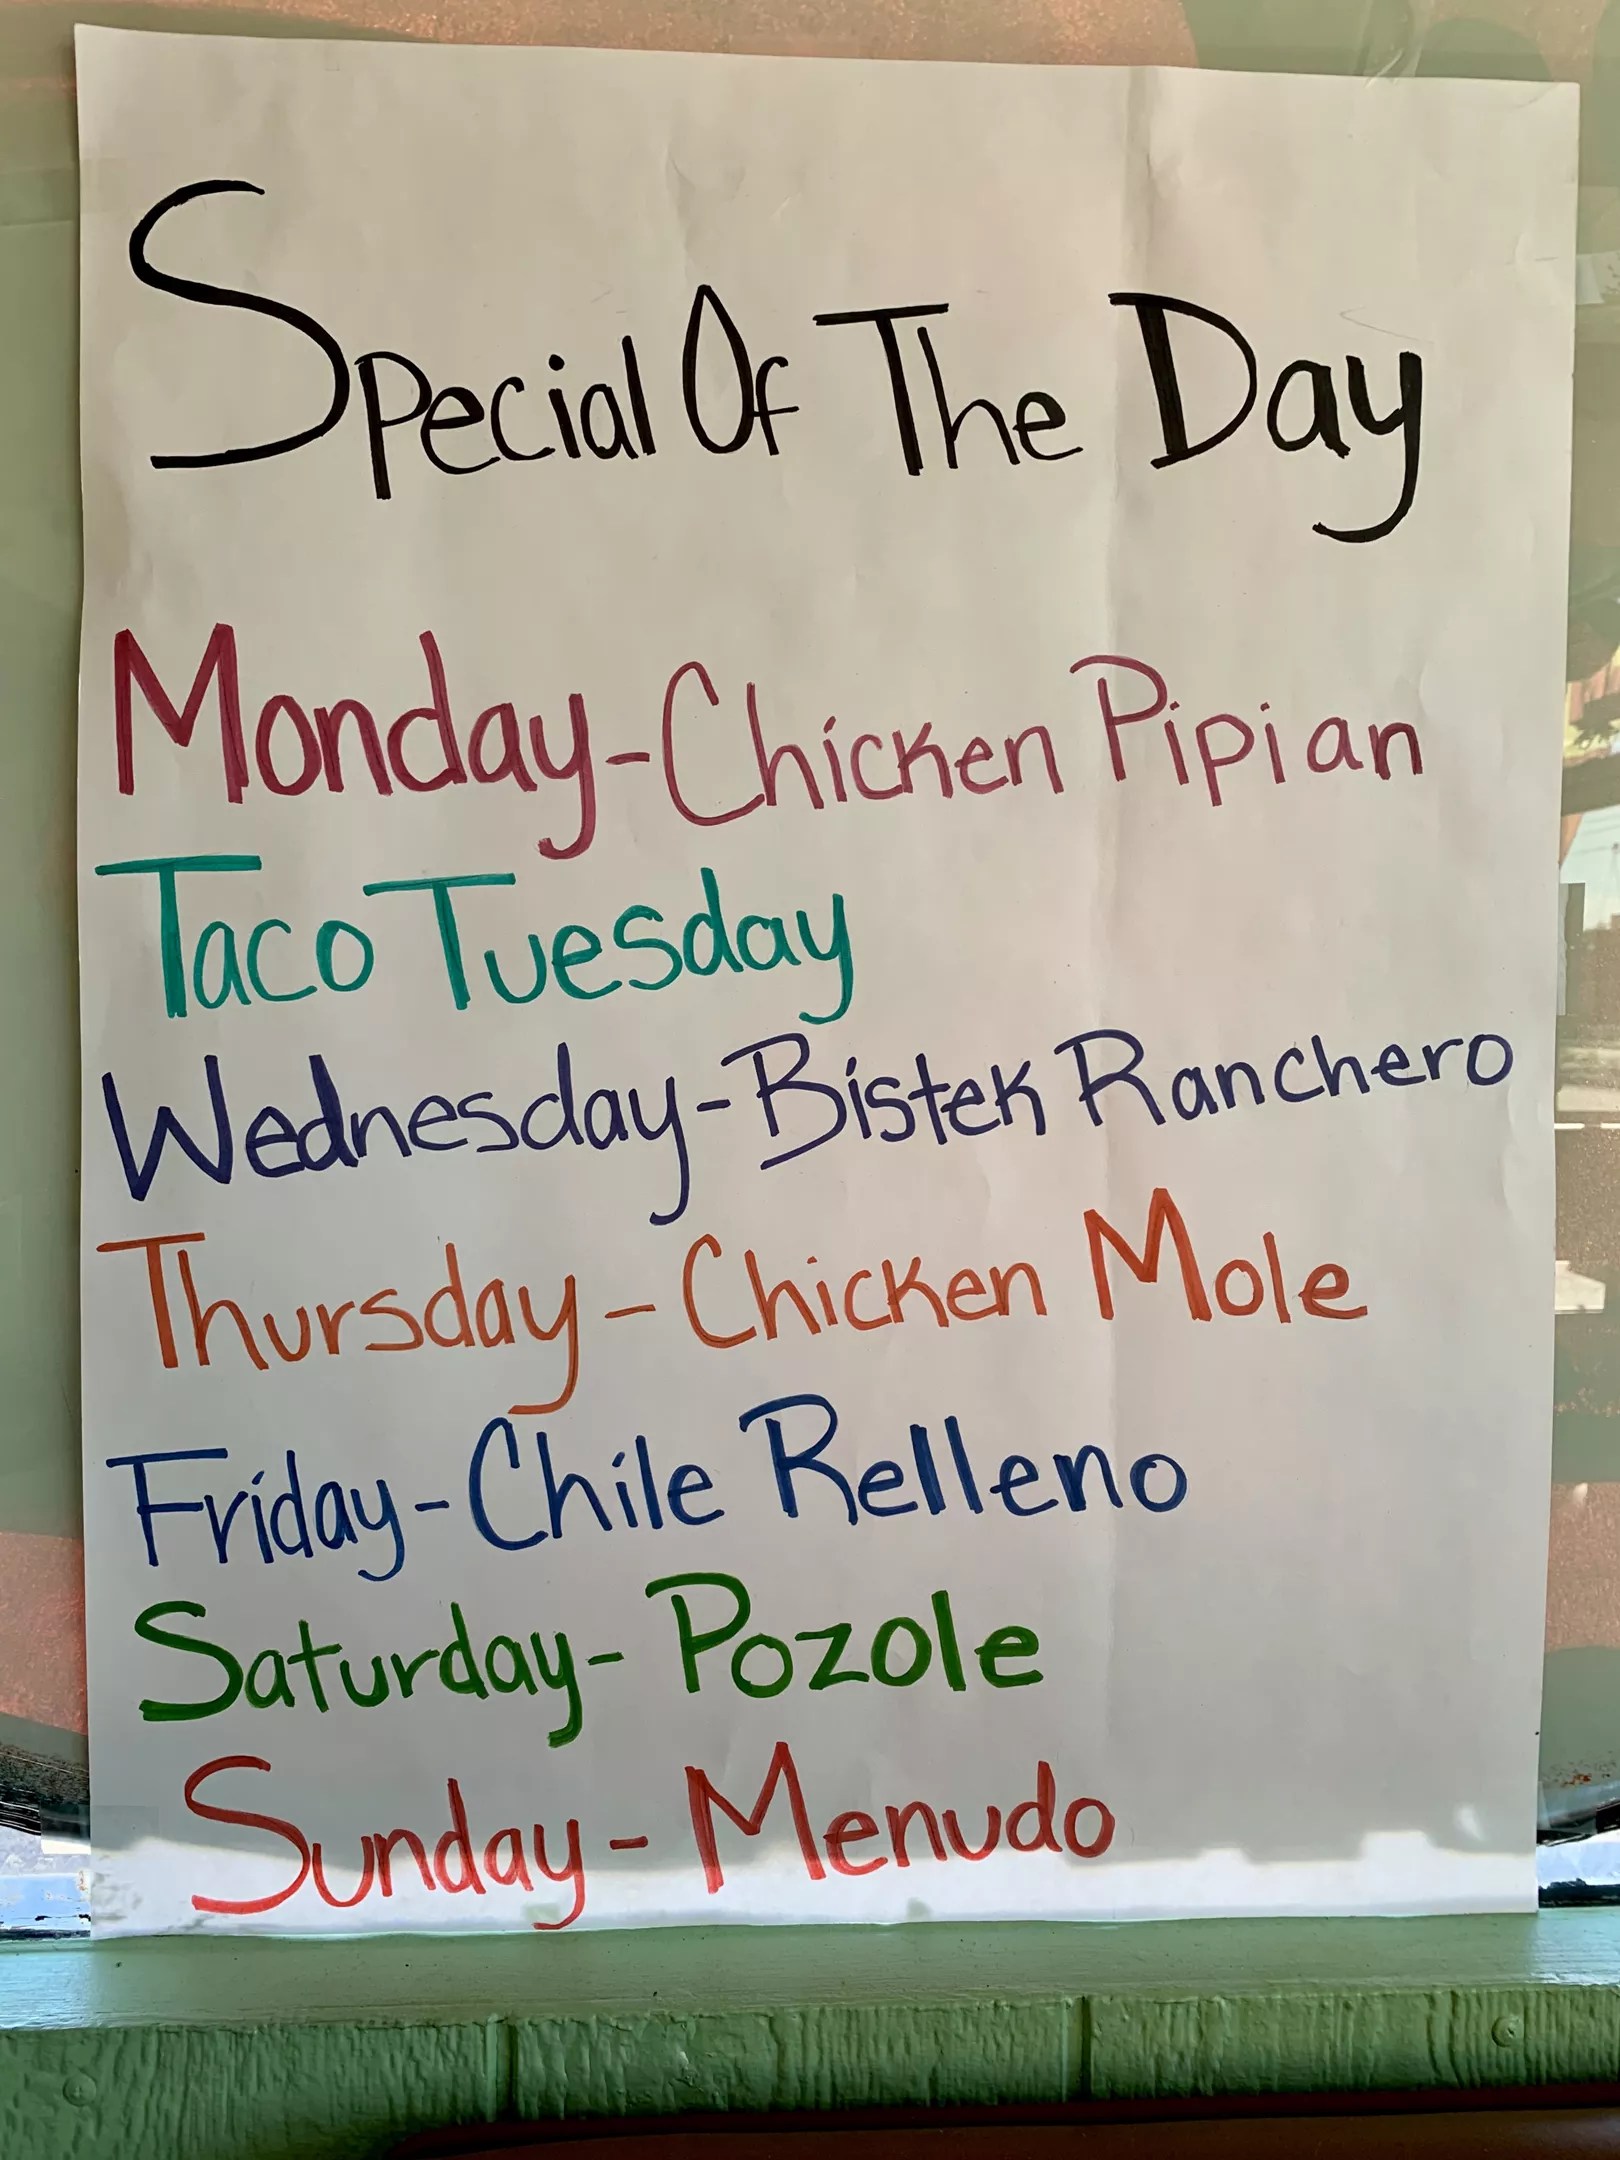 Special Of The Day
Monday-Chicken Pipian
Taco Tuesday
Wednesday-Bistek Ranchero
Thursday-Chicken Mole
Friday-Chile Relleno
Saturday-Pozole
Sunday-Menudo